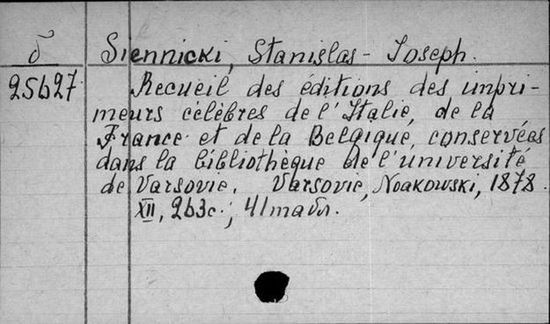 б Siennicki, Stanislas-Joseph.
25627 Recueil des éditions des impri-
meurs célèbres de l'Italie, de la
France et de la Belgique, conservées
dans la bibliothèque de l'université
de Varsovie. Varsovie, Noakowski, 1878.
XII, 263с.; 41 табл.